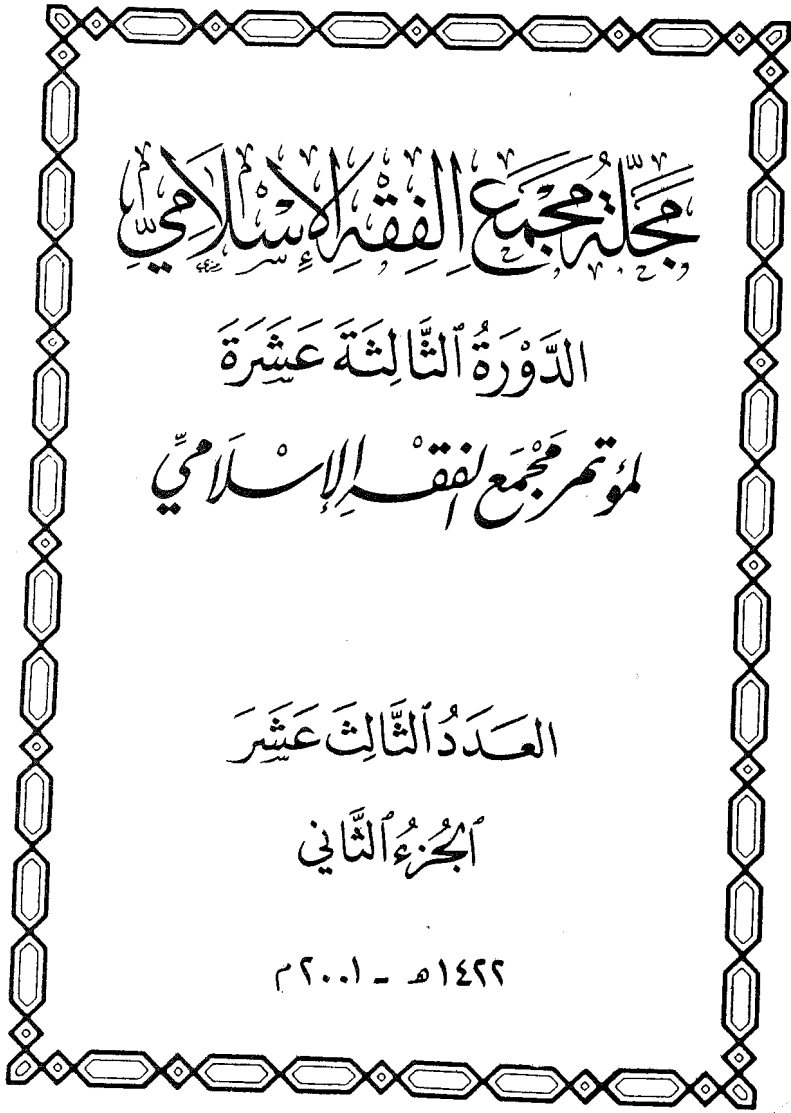 مَجَلَّةُ مَجْمَعِ الْفِقْهِ الْإِسْلَامِيِّ
الدَّوْرَةُ ٱلثَّالِثَةَ عَشَرَةَ
لمؤتمر مَجْمَع الفقْه الإسْلَاميِّ
العَدَدُ ٱلثَّالِثَ عَشَرَ
ٱلجُزءُ ٱلثَّاني
١٤٢٢ هـ - ٢٠٠١ م